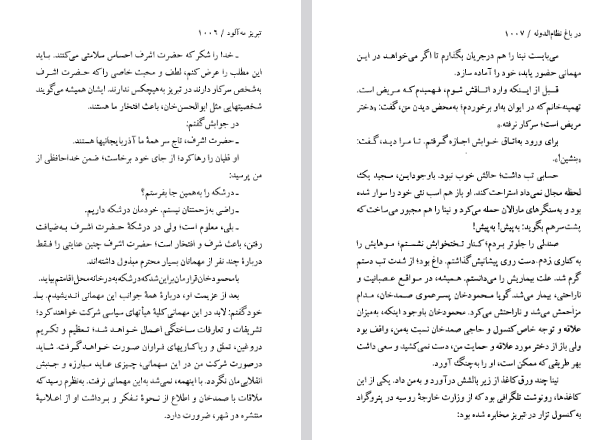 تبریز مه‌آلود / ۱۰۰۶
ـ خدا را شکر که حضرت اشرف احساس سلامتی می‌کنند. باید
این مطلب را عرض کنم، لطف و محبت خاصی را که حضرت اشرف
به شخص سرکار دارند در تبریز به هیچکس ندارند. ایشان همیشه می‌گویند
شخصیتهایی مثل ابوالحسن‌خان، باعث افتخار ما هستند.
در جوابش گفتم:
ـ حضرت اشرف، تاج سر همهٔ ما آذربایجانیها هستند.
او قلیان را رها کرد؛ از جای خود برخاست؛ ضمن خداحافظی از
من پرسید:
ـ درشکه را به همین جا بفرستم؟
ـ راضی به زحمتتان نیستم. خودمان درشکه داریم.
ـ بلی، معلوم است؛ ولی در درشکهٔ حضرت اشرف به ضیافت
رفتن، باعث شرف و افتخار است؛ حضرت اشرف چنین عنایتی را فقط
دربارهٔ چند نفر از مهمانان بسیار محترم مبذول داشته‌اند.
با محمودخان قرارمان براین شد که درشکه به در خانه محل اقامتم بیاید.
بعد از عزیمت او، دربارهٔ همهٔ جوانب این مهمانی اندیشیدم. با
خود گفتم: لابد در این مهمانی کلیهٔ هیأتهای سیاسی شرکت خواهند کرد؛
تشریفات و تعارفات ساختگی اعمال خواهد شد؛ تعظیم و تکریم
دروغین، تملق و ریاکاریهای فراوان صورت خواهد گرفت. شاید
درصورت شرکت من در این مهمانی، چیزی عاید مبارزه و جنبش
انقلابی مان نگردد. با اینهمه، نمی‌شد به این مهمانی نرفت. به نظرم رسید که
ملاقات با صمدخان و اطلاع از نحوهٔ تفکر و برداشت او از اعلامیهٔ
منتشره در شهر، ضرورت دارد.
در باغ نظام‌الدوله / ۱۰۰۷
می‌بایست نینا را هم درجریان بگذارم تا اگر می‌خواهد در این
مهمانی حضور یابد، خود را آماده سازد.
قبل از اینکه وارد اتاقش شوم، فهمیدم که مریض است.
تهمینه‌خانم که در ایوان به او برخوردم؛ به محض دیدن من، گفت: «دختر
مریض است؛ سرکار نرفته.»
برای ورود به اتاق خوابش اجازه گرفتم. تا مرا دید، گفت:
«بنشین!».
حسابی تب داشت؛ حالش خوب نبود. باوجوداین، سجید یک
لحظه مجال نمی‌داد استراحت کند. او باز هم اسب نئی خود را سوار شده
بود و به سنگرهای مارالان حمله می‌کرد و نینا را هم مجبور می‌ساخت که
پشت سرهم بگوید: به پیش! به پیش!
صندلی را جلوتر بردم؛ کنار تختخوابش نشستم؛ موهایش را
به کناری زدم. دست روی پیشانیش گذاشتم. داغ بود؛ از شدت تب دستم
گرم شد. علت بیماریش را می‌دانستم. همیشه، در مواقع عصبانیت و
ناراحتی، بیمار می‌شد. گویا محمودخان پسرعموی صمدخان، مدام
مزاحمش می‌شد و ناراحتش می‌کرد. محمودخان باوجود اینکه، به میزان
علاقه و توجه خاص کنسول و حاجی صمدخان نسبت به من، واقف بود
ولی باز از دختر مورد علاقه و حمایت من، دست نمی‌کشید و سعی داشت
بهر طریقی که ممکن است، او را به چنگ آورد.
نینا چند ورق کاغذ از زیر بالش درآورد و به من داد. یکی از این
کاغذها، رونوشت تلگرافی بود که از وزارت خارجهٔ روسیه در پتروگراد
به کنسول تزار در تبریز مخابره شده بود: